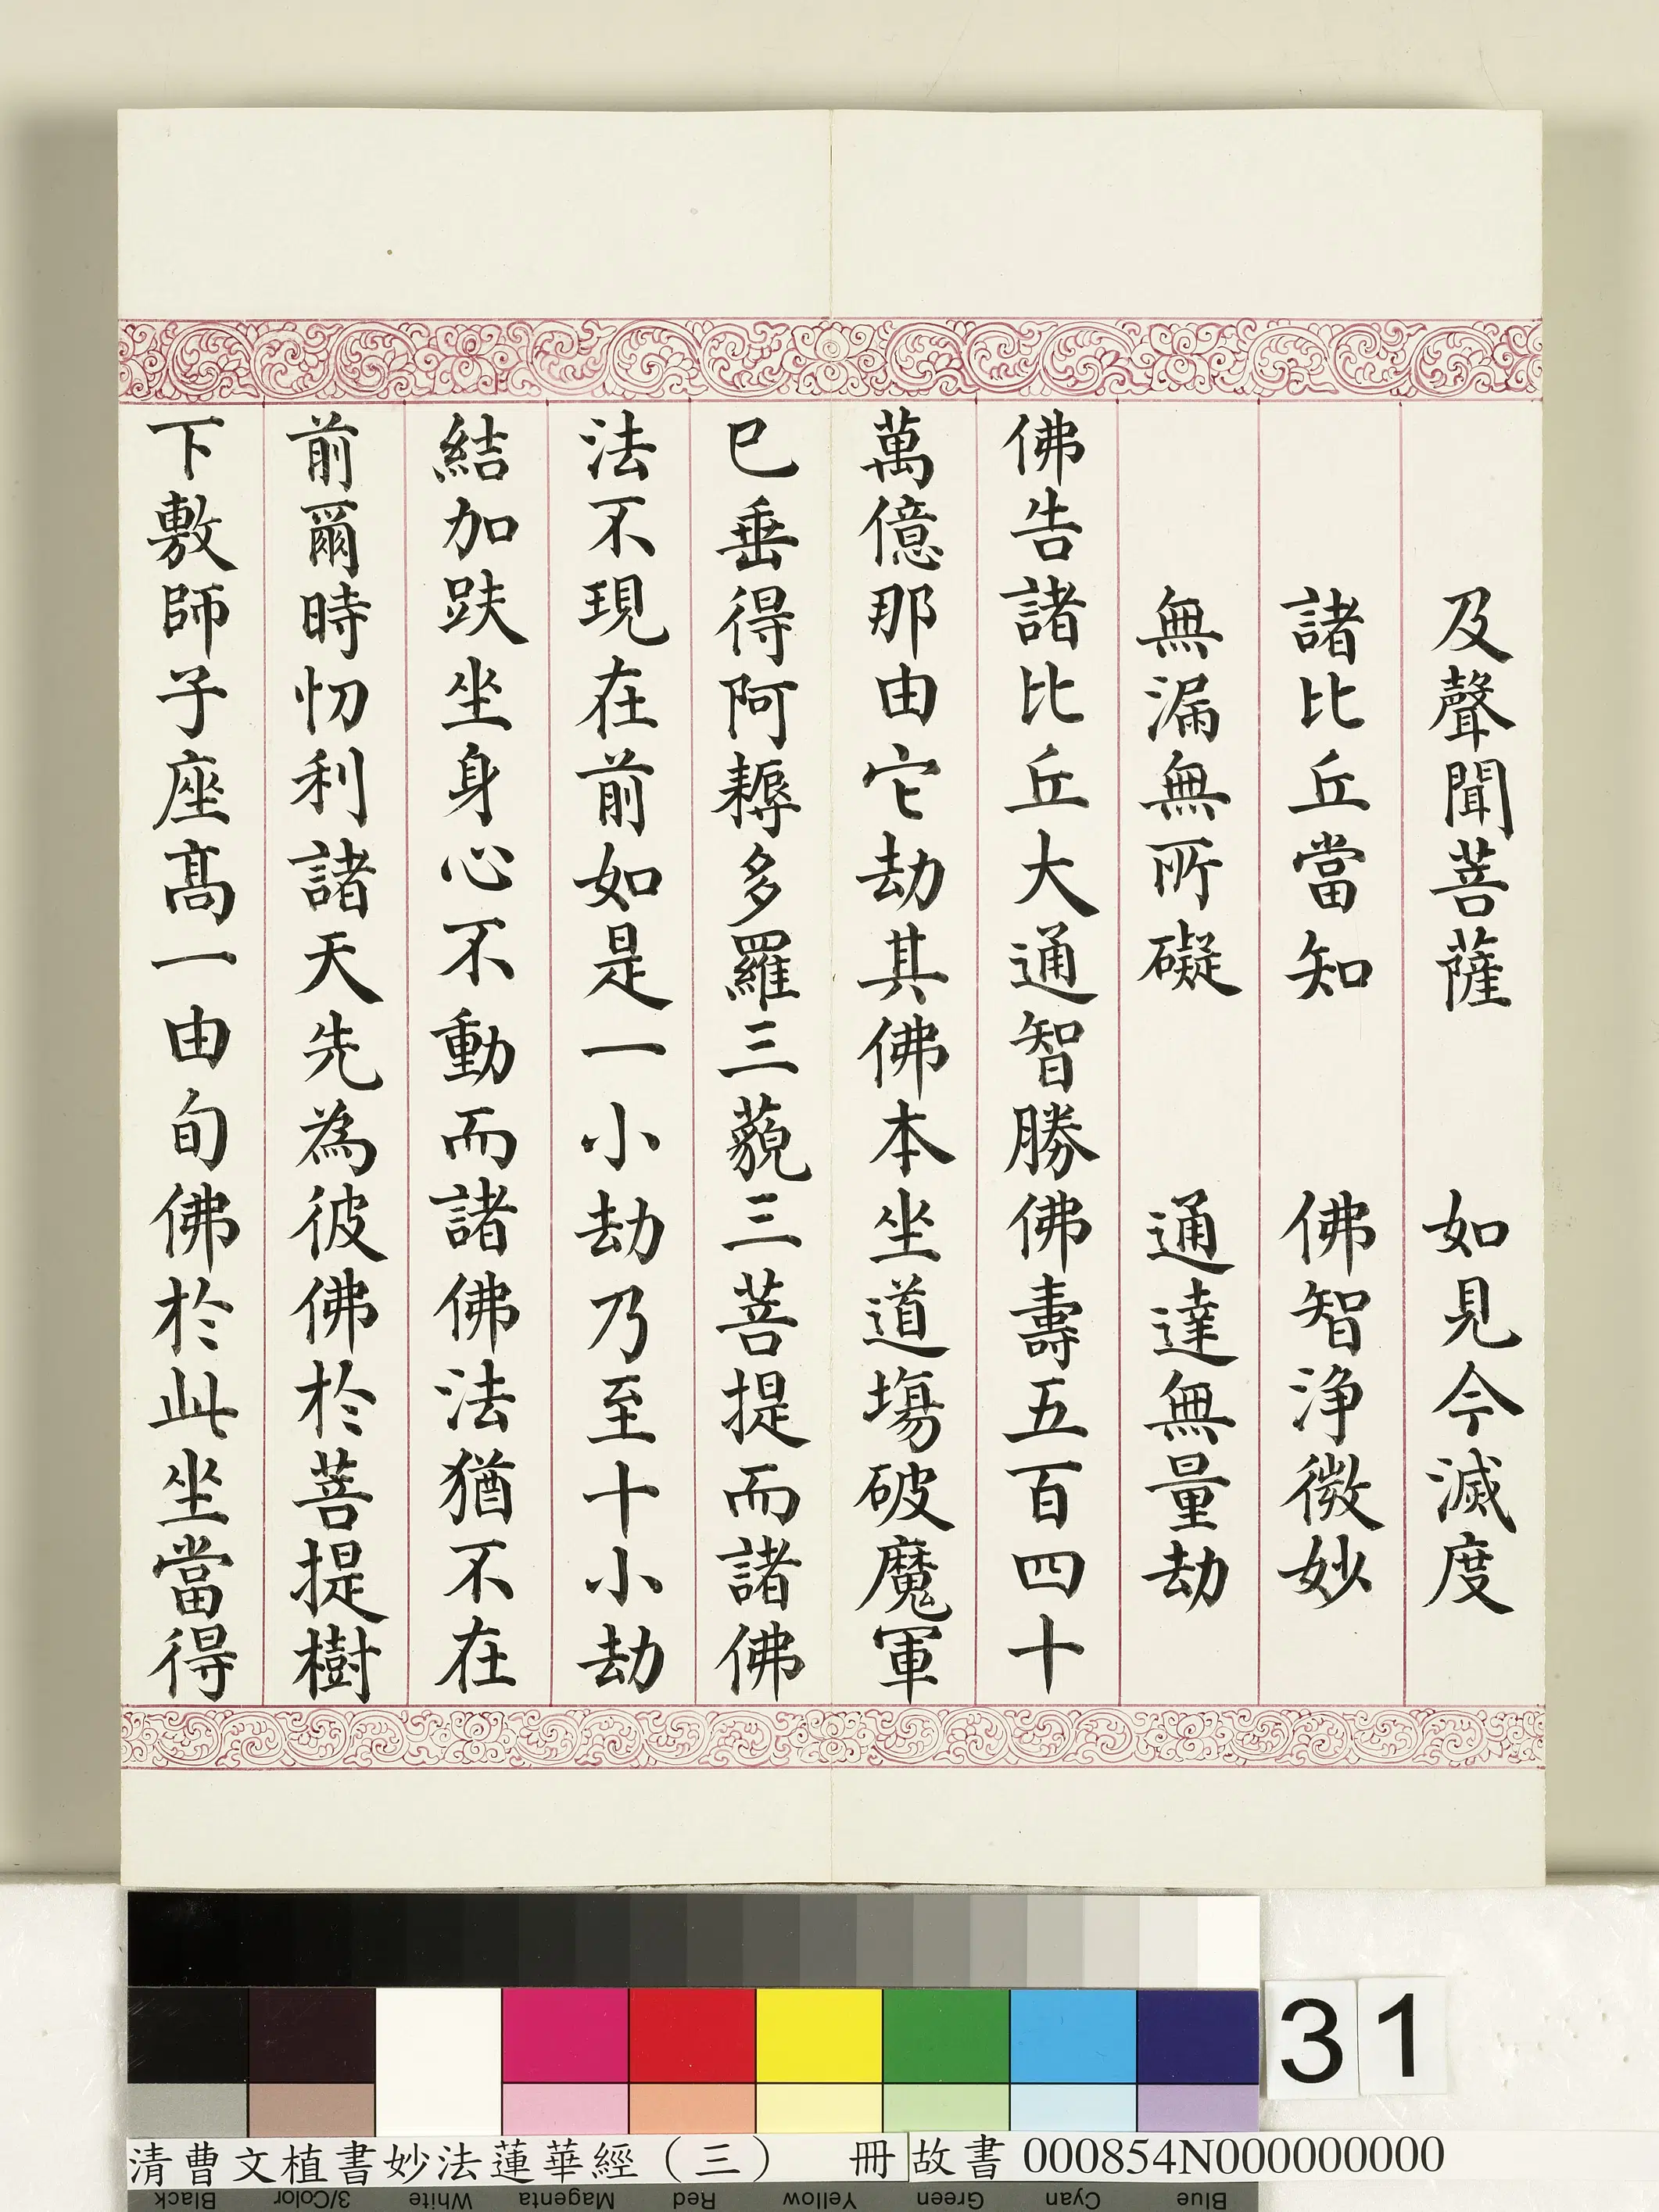 及聲聞菩薩　如見今滅度
諸比丘當知　佛智淨微妙
無漏無所礙　通達無量劫
佛告諸比丘大通智勝佛壽五百四十
萬億那由它劫其佛本坐道塲破魔軍
已垂得阿耨多羅三藐三菩提而諸佛
法不現在前如是一小劫乃至十小劫
結加趺坐身心不動而諸佛法猶不在
前爾時忉利諸天先為彼佛於菩提樹
下敷師子座髙一由旬佛於此坐當得
31
清曹文植書妙法蓮華經（三）　冊
故書 000854N000000000
Black 3/Color White Magenta Red Yellow Green Cyan Blue